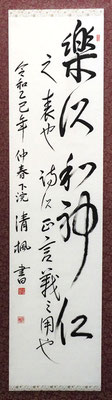 樂以和神仁
之表也詩以正言義之用也
令和乙巳年仲春下浣清楓書